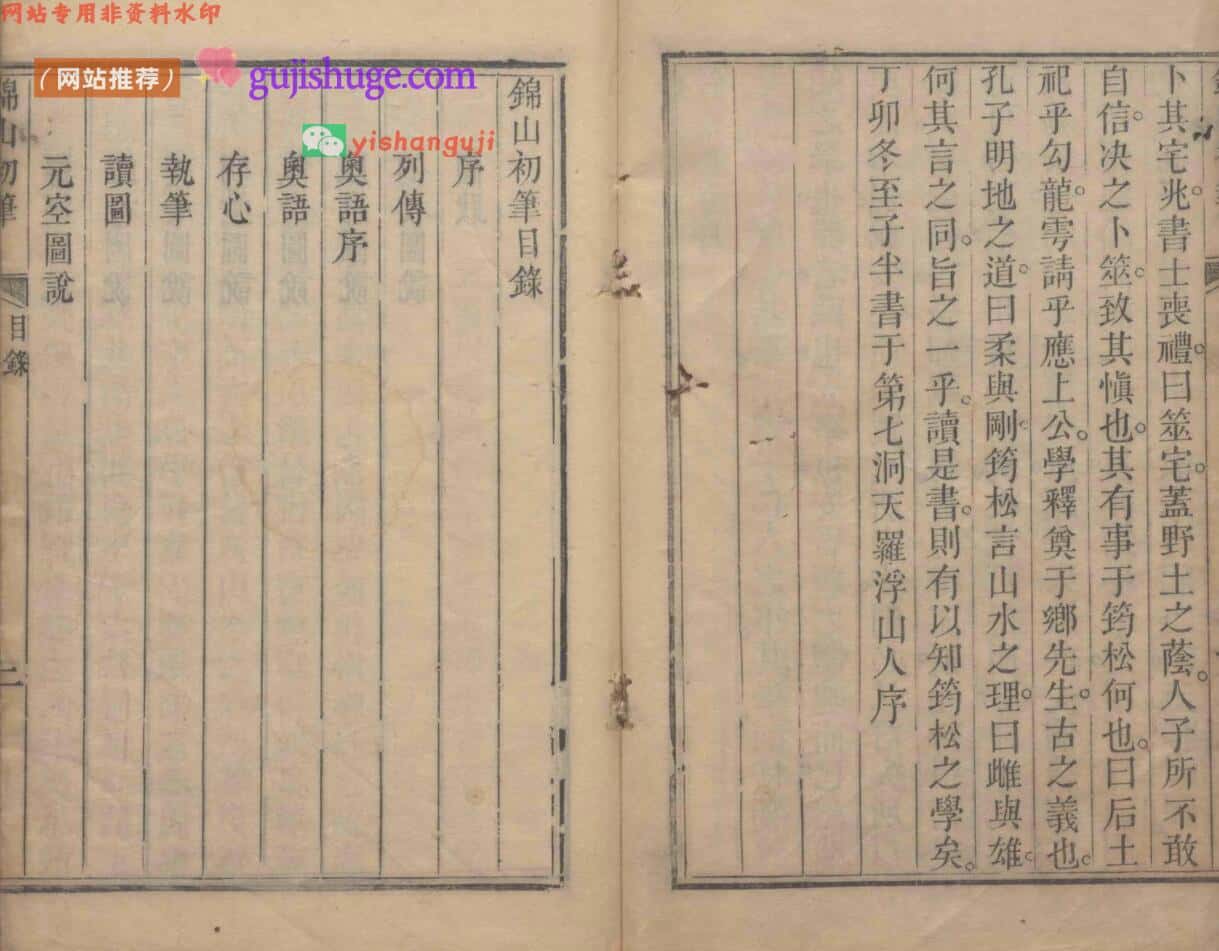 网站专用非资料水印
（网站推荐）
gujishuge.com
yishanguji
卜其宅兆。書士喪禮。曰筮宅。蓋野土之蔭。人子所不敢
自信。决之卜筮。致其慎也。其有事于筠松何也。曰后土
祀乎勾龍。雩請乎應上公。學釋奠于鄉先生。古之義也。
孔子明地之道。曰柔與剛。筠松言山水之理。曰雌與雄。
何其言之同。旨之一乎。讀是書。則有以知筠松之學矣。
丁卯冬至子半書于第七洞天羅浮山人序
錦山初筆目錄
序
列傳
奧語序
奧語
存心
執筆
讀圖
元空圖說
錦山初筆
目錄
二